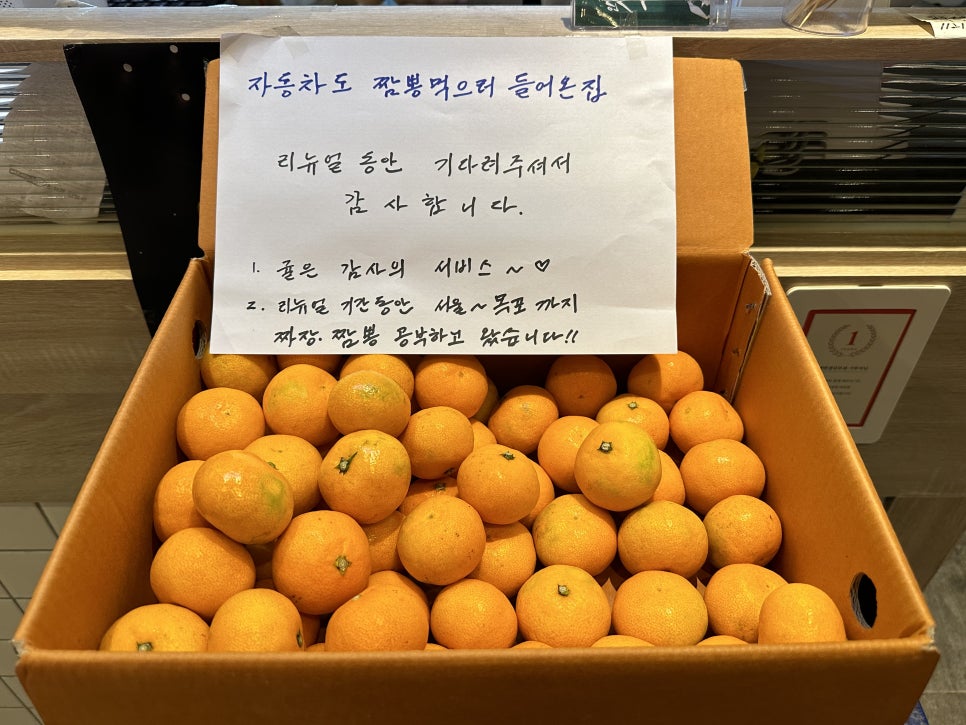 자동차도 짬뽕먹으러 들어온집
리뉴얼 동안 기다려주셔서
감사합니다.
1. 귤은 감사의 서비스~♡
2. 리뉴얼 기간동안 서울~목포까지
짜장·짬뽕 공부하고 왔습니다!!
1